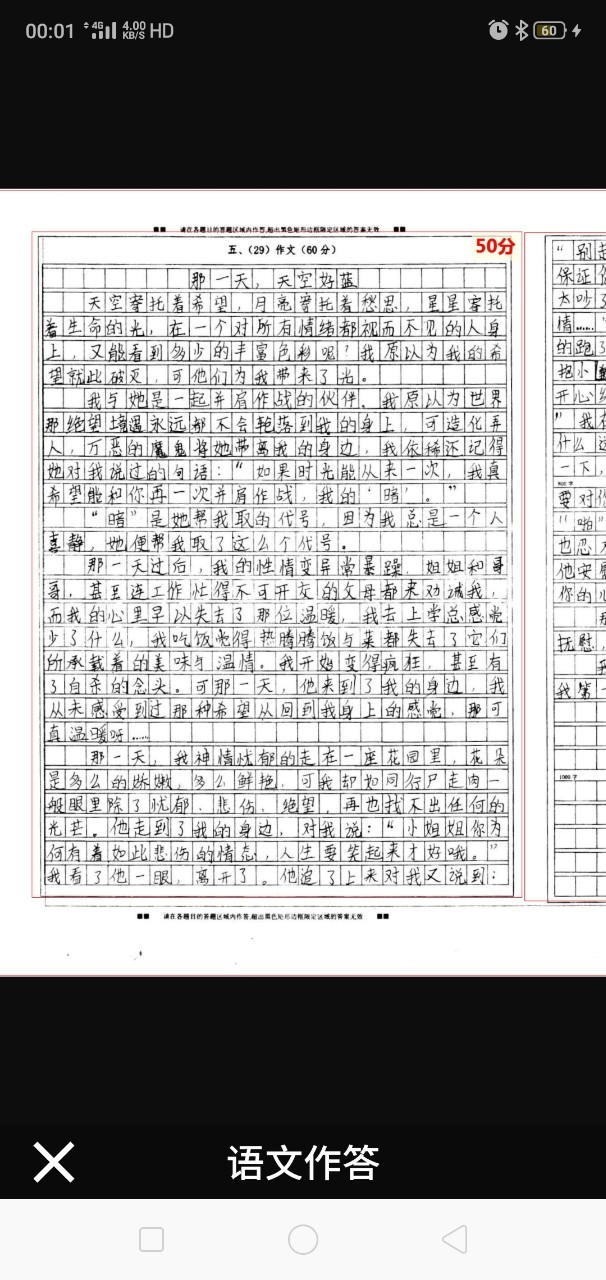 00:01 4G 4.00 KB/S HD 60
请在各题目的答题区域内作答,超出黑色矩形边框限定区域的答案无效
五、(29)作文(60分)
50分
那一天，天空好蓝
天空寄托着希望，月亮寄托着愁思，星星寄托
着生命的光，在一个对所有情绪都视而不见的人身
上，又能看到多少的丰富色彩呢？我原以为我的希
望就此破灭，可他们为我带来了光。
我与她是一起并肩作战的伙伴。我原以为世界
那绝望境遇永远都不会轮落到我的身上，可造化弄
人，万恶的魔鬼将她带离我的身边，我依稀还记得
她对我说过的句语：“如果时光能从来一次，我真
希望能和你再一次并肩作战，我的‘暗’。”
“暗”是她帮我取的代号，因为我总是一个人
喜静，她便帮我取了这么个代号。
那一天过后，我的性情变异常暴躁，姐姐和哥
哥，甚至连工作忙得不可开交的父母都来劝诫我，
而我的心里早以失去了那位温暖，我去上学总感觉
少了什么，我吃饭觉得热腾腾饭与菜都失去了它们
所承载着的美味与温情。我开始变得疯狂，甚至有
了自杀的念头。可那一天，他来到了我的身边，我
从未感受到过那种希望从回到我身上的感觉，那可
真温暖呀……
那一天，我神情忧郁的走在一座花园里，花朵
是多么的娇嫩，多么鲜艳，可我却如同行尸走肉一
般眼里除了忧郁、悲伤、绝望，再也找不出任何的
光芒。他走到了我的身边，对我说：“小姐姐你为
何有着如此悲伤的情态，人生要笑起来才好哦。”
我看了他一眼，离开了。他追了上来对我又说到：
请在各题目的答题区域内作答,超出黑色矩形边框限定区域的答案无效
“别起
保证你
太吵了
情……”
的跑了
抱小
开心
“我在
什么
一下，
要对你
“啪”
也忍
他安
你的心
抚慰，
我第一
1000字
语文作答